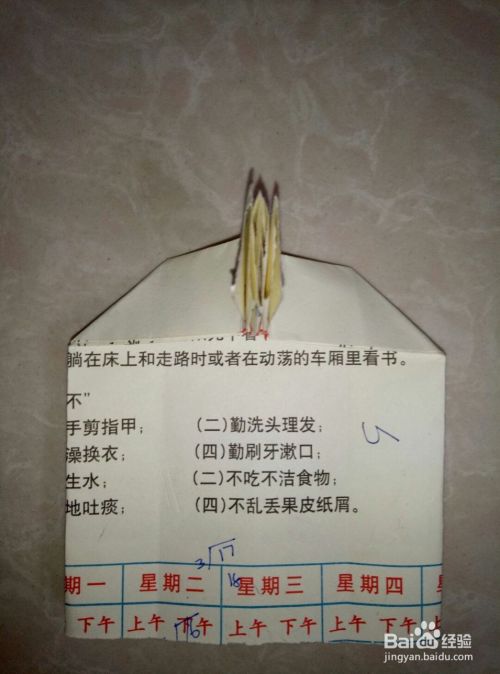 躺在床上和走路时或者在动荡的车厢里看书。
不”
手剪指甲； （二）勤洗头理发；
澡换衣； （四）勤刷牙漱口；
生水； （二）不吃不洁食物；
地吐痰； （四）不乱丢果皮纸屑。
3 17
16
期一 星期二 星期三 星期四
下午 上午 下午 上午 下午 上午 下午 上
Baidu经验
jingyan.baidu.com